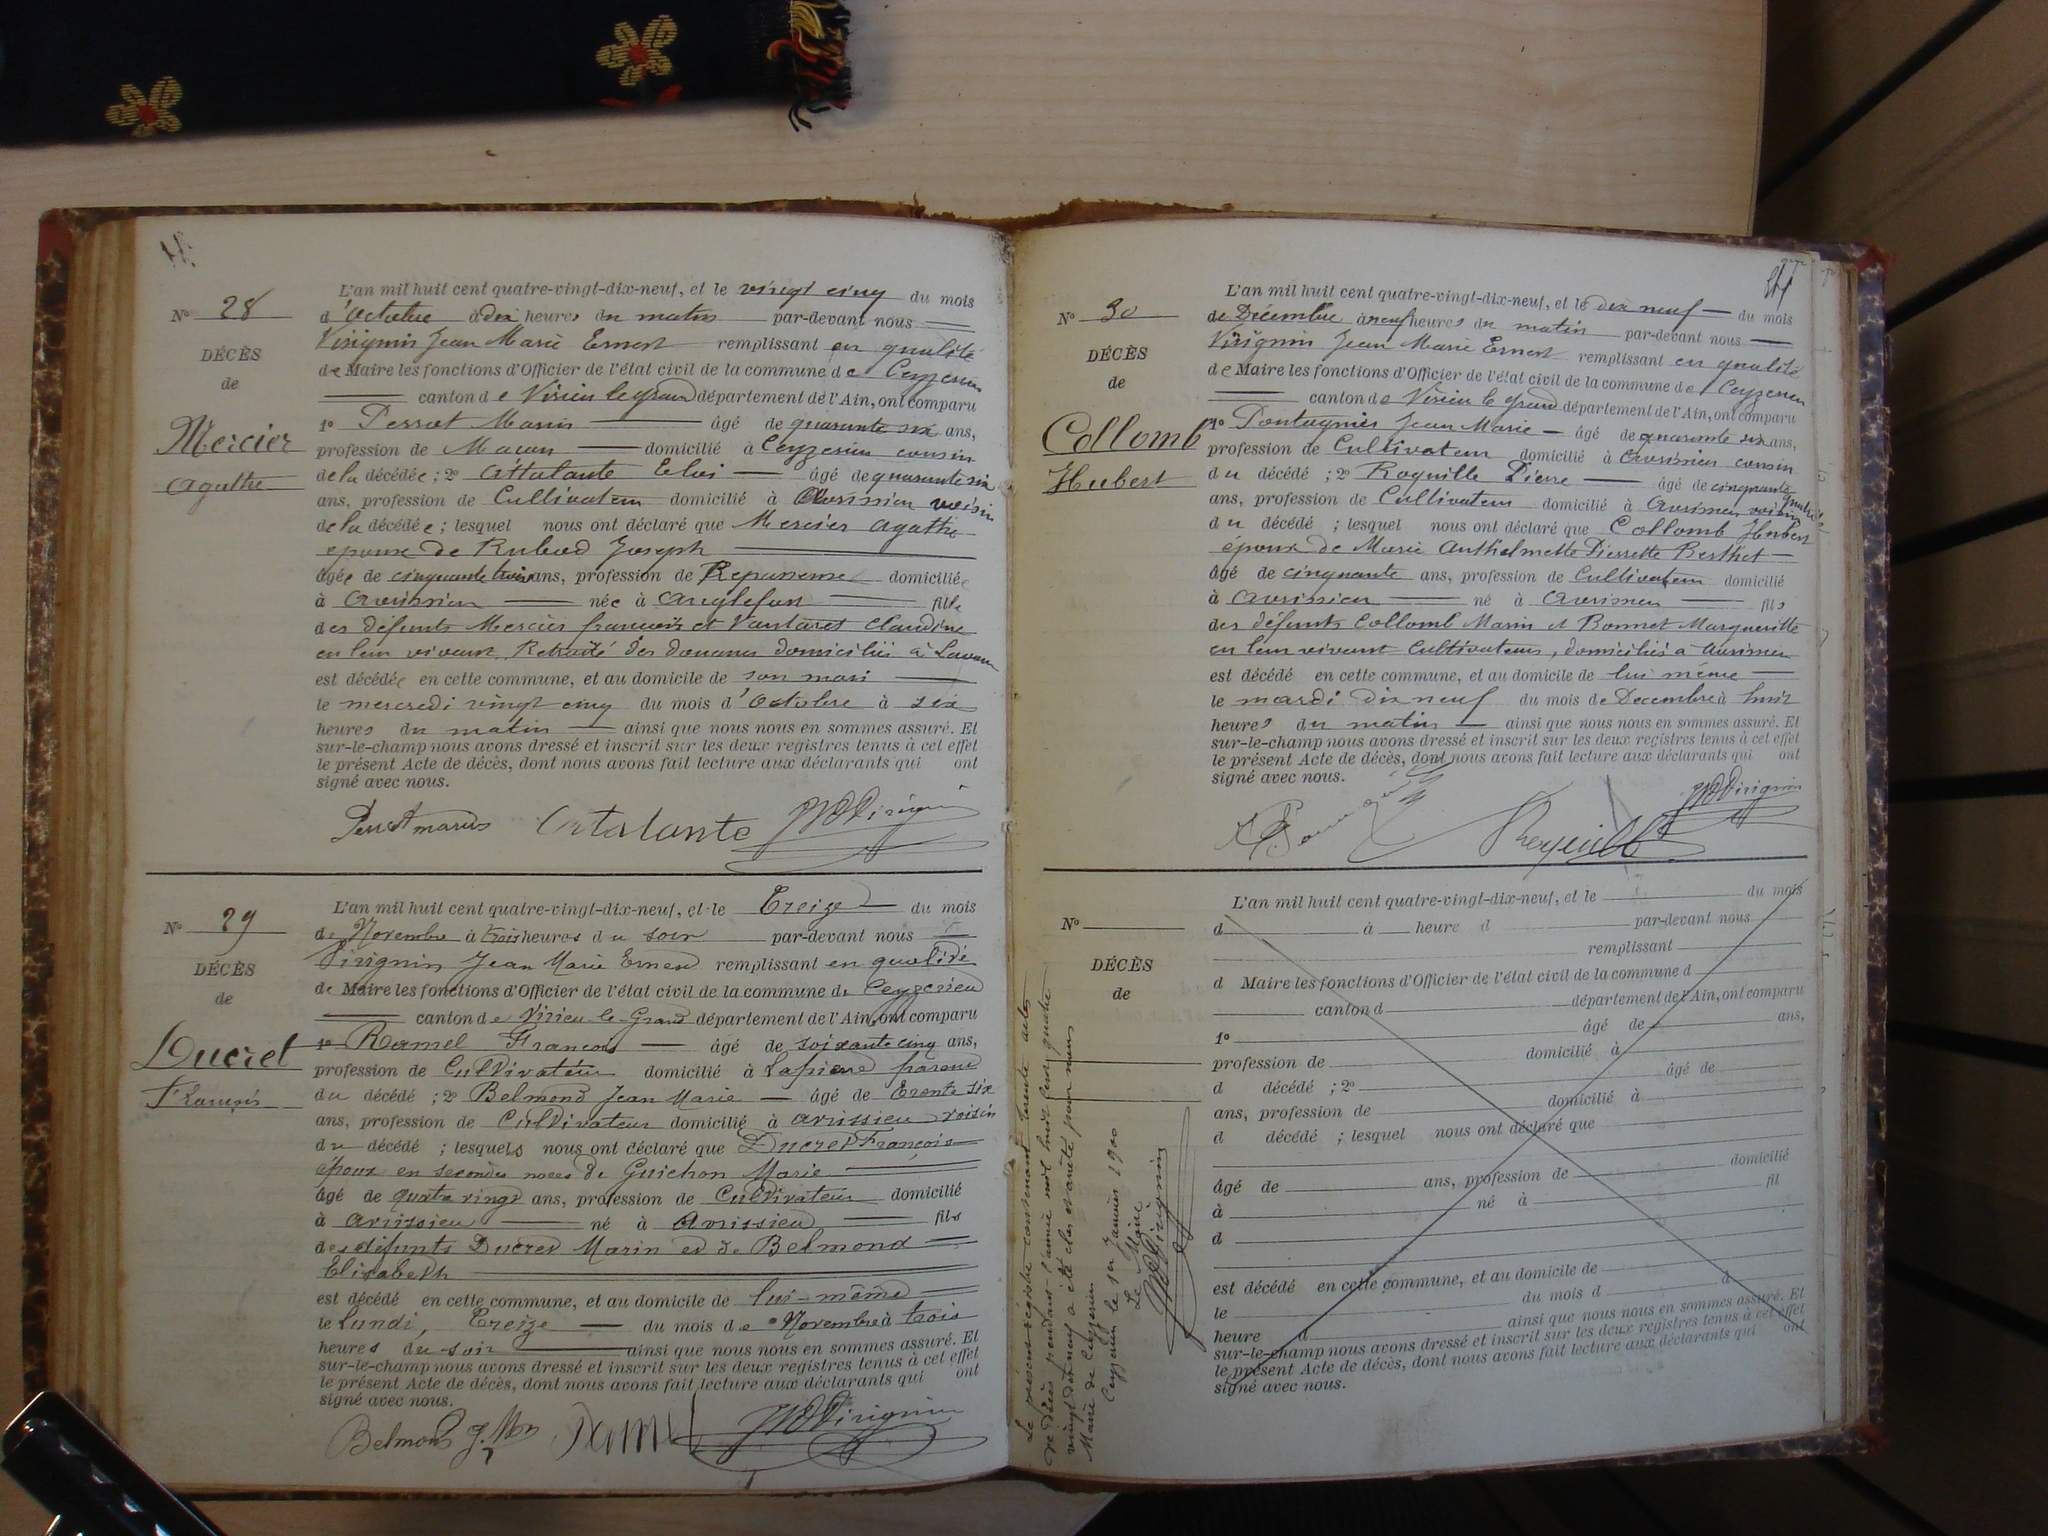 L'an mil huit cent quatre-vingt-dix-neuf, et le vingt cinq du mois
N° 28
d'Octobre à dix heures du matin par-devant nous
Virignin Jean Marie Ernest remplissant en qualité
DÉCÈS
de Maire les fonctions d'Officier de l'état civil de la commune de Ceyzerieu
de
canton de Virieu le grand département de l'Ain, ont comparu
Mercier
1° Perret Marin âgé de quarante six ans,
profession de Maçon domicilié à Ceyzerieu cousin
Agathe
de la décédée ; 2° Attalante Eloi âgé de quarante six
ans, profession de Cultivateur domicilié à Avrissieu voisin
de la décédée ; lesquel nous ont déclaré que Mercier Agathe
épouse de Rubod Joseph
âgée de cinquante trois ans, profession de Repasseuse domiciliée
à Avrissieu née à Anglefort fille
des défunts Mercier françois et Vautaret Claudine
en leur vivant Retraité des douanes domiciliés à
est décédée en cette commune, et au domicile de son mari
le mercredi vingt cinq du mois d'Octobre à six
heures du matin ainsi que nous nous en sommes assuré. Et
sur-le-champ nous avons dressé et inscrit sur les deux registres tenus à cet effet
le présent Acte de décès, dont nous avons fait lecture aux déclarants qui ont
signé avec nous.
Perret marius Attalante JM Virignin
L'an mil huit cent quatre-vingt-dix-neuf, et le Treize du mois
N° 29
de Novembre à trois heures du soir par-devant nous
Virignin Jean Marie Ernest remplissant en qualité
DÉCÈS
de Maire les fonctions d'Officier de l'état civil de la commune de Ceyzerieu
de
canton de Virieu-le-Grand département de l'Ain, ont comparu
Ducret
1° Ramel François âgé de soixante cinq ans,
profession de Cultivateur domicilié à Lapierre parent
François
du décédé ; 2° Belmond Jean Marie âgé de Trente six
ans, profession de Cultivateur domicilié à Avrissieu voisin
du décédé ; lesquels nous ont déclaré que Ducret François
époux en secondes noces de Guichon Marie
âgé de quatre vingt ans, profession de Cultivateur domicilié
à Avrissieu né à Avrissieu fils
des défunts Ducret Marin et de Belmond
Elisabeth
est décédé en cette commune, et au domicile de lui-même
le Lundi, Treize du mois de Novembre à trois
heures du soir ainsi que nous nous en sommes assuré. Et
sur-le-champ nous avons dressé et inscrit sur les deux registres tenus à cet effet
le présent Acte de décès, dont nous avons fait lecture aux déclarants qui ont
signé avec nous.
Belmond J. M Ramel JM Virignin
L'an mil huit cent quatre-vingt-dix-neuf, et le dix neuf du mois
N° 30
de Décembre à neuf heures du matin par-devant nous
Virignin Jean Marie Ernest remplissant en qualité
DÉCÈS
de Maire les fonctions d'Officier de l'état civil de la commune de Ceyzerieu
de
canton de Virieu le Grand département de l'Ain, ont comparu
Collomb
1° Pontagnier Jean Marie âgé de quarante six ans,
profession de Cultivateur domicilié à Avrissieu cousin
Hubert
du décédé ; 2° Roquille Pierre âgé de cinquante quatre
ans, profession de Cultivateur domicilié à Avrissieu voisin
du décédé ; lesquel nous ont déclaré que Collomb Hubert
époux de Marie Anthelmette Pierrette Berthet
âgé de cinquante ans, profession de Cultivateur domicilié
à Avrissieu né à Avrissieu fils
des défunts Collomb Marin et Bonnet Margueritte
en leur vivant Cultivateurs, domiciliés à Avrissieu
est décédé en cette commune, et au domicile de lui même
le mardi dix neuf du mois de Decembre à huit
heures du matin ainsi que nous nous en sommes assuré. Et
sur-le-champ nous avons dressé et inscrit sur les deux registres tenus à cet effet
le présent Acte de décès, dont nous avons fait lecture aux déclarants qui ont
signé avec nous.
JM Virignin
L'an mil huit cent quatre-vingt-dix-neuf, et le du mois
N°
d à heure d par-devant nous
remplissant
DÉCÈS
d Maire les fonctions d'Officier de l'état civil de la commune d
de
canton d département de l'Ain, ont comparu
1° âgé de ans,
profession de domicilié à
d décédé ; 2° âgé de
ans, profession de domicilié à
d décédé ; lesquel nous ont déclaré que
âgé de ans, profession de domicilié
à né à fil
d
est décédé en cette commune, et au domicile de
le du mois d d
heure d ainsi que nous nous en sommes assuré. Et
sur-le-champ nous avons dressé et inscrit sur les deux registres tenus à cet effet
le présent Acte de décès, dont nous avons fait lecture aux déclarants qui ont
signé avec nous.
Le présent régistre contenant trente actes
de décès pendant l'année mil huit cent quatre
vingt dix neuf a été clos et arrêté par nous
Maire de Ceyzerieu
Ceyzerieu le 1er Janvier 1900
Le Maire
JM Virignin